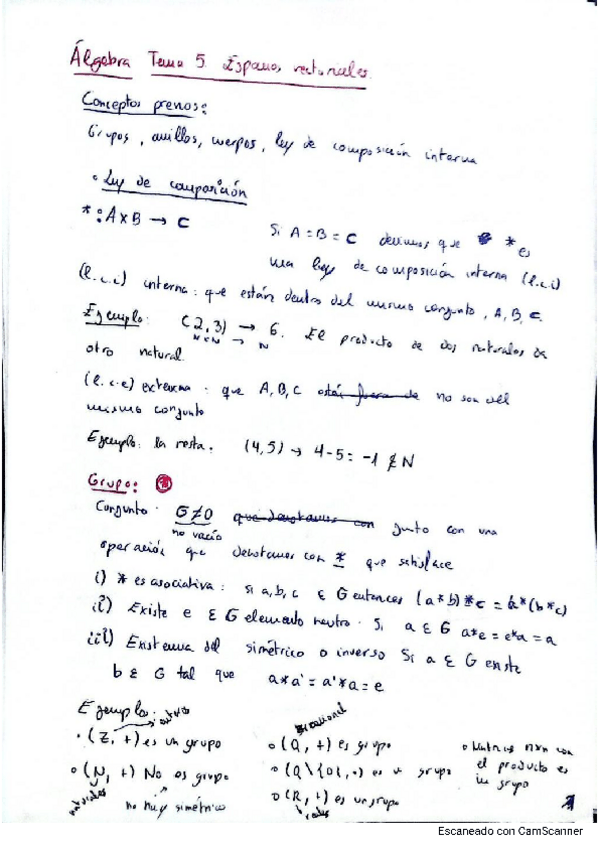 Álgebra Tema 5. Espacios vectoriales.
Conceptos previos:
Grupos, anillos, cuerpos, ley de composición interna
• Ley de composición
* : A x B → C
Si A = B = C decimos que * es
una ley de composición interna (l.c.i)
(l.c.i) interna: que están dentro del mismo conjunto, A, B, C.
Ejemplo: (2,3) → 6. El producto de dos naturales da
N x N → N
otro natural.
(l.c.e) externa: que A, B, C están fuera de no son del
mismo conjunto
Ejemplo: la resta: (4,5) → 4-5 = -1 ∉ N
Grupo:
Conjunto G ≠ 0 que denotamos con junto con una
no vacío
operación que denotamos con * que satisface
i) * es asociativa: si a, b, c ∈ G entonces (a*b)*c = a*(b*c)
ii) Existe e ∈ G elemento neutro. Si a ∈ G a*e = e*a = a
iii) Existencia del simétrico o inverso Si a ∈ G existe
b ∈ G tal que a*a' = a'*a = e
Ejemplo:
enteros
• (Z, +) es un grupo
o (N, +) No es grupo
naturales
no hay simétrico
o (Q, +) es grupo
o (Q\{0}, ·) es grupo
o (R, +) es un grupo
reales
o Matrices nxn con
el producto es
un grupo
Escaneado con CamScanner